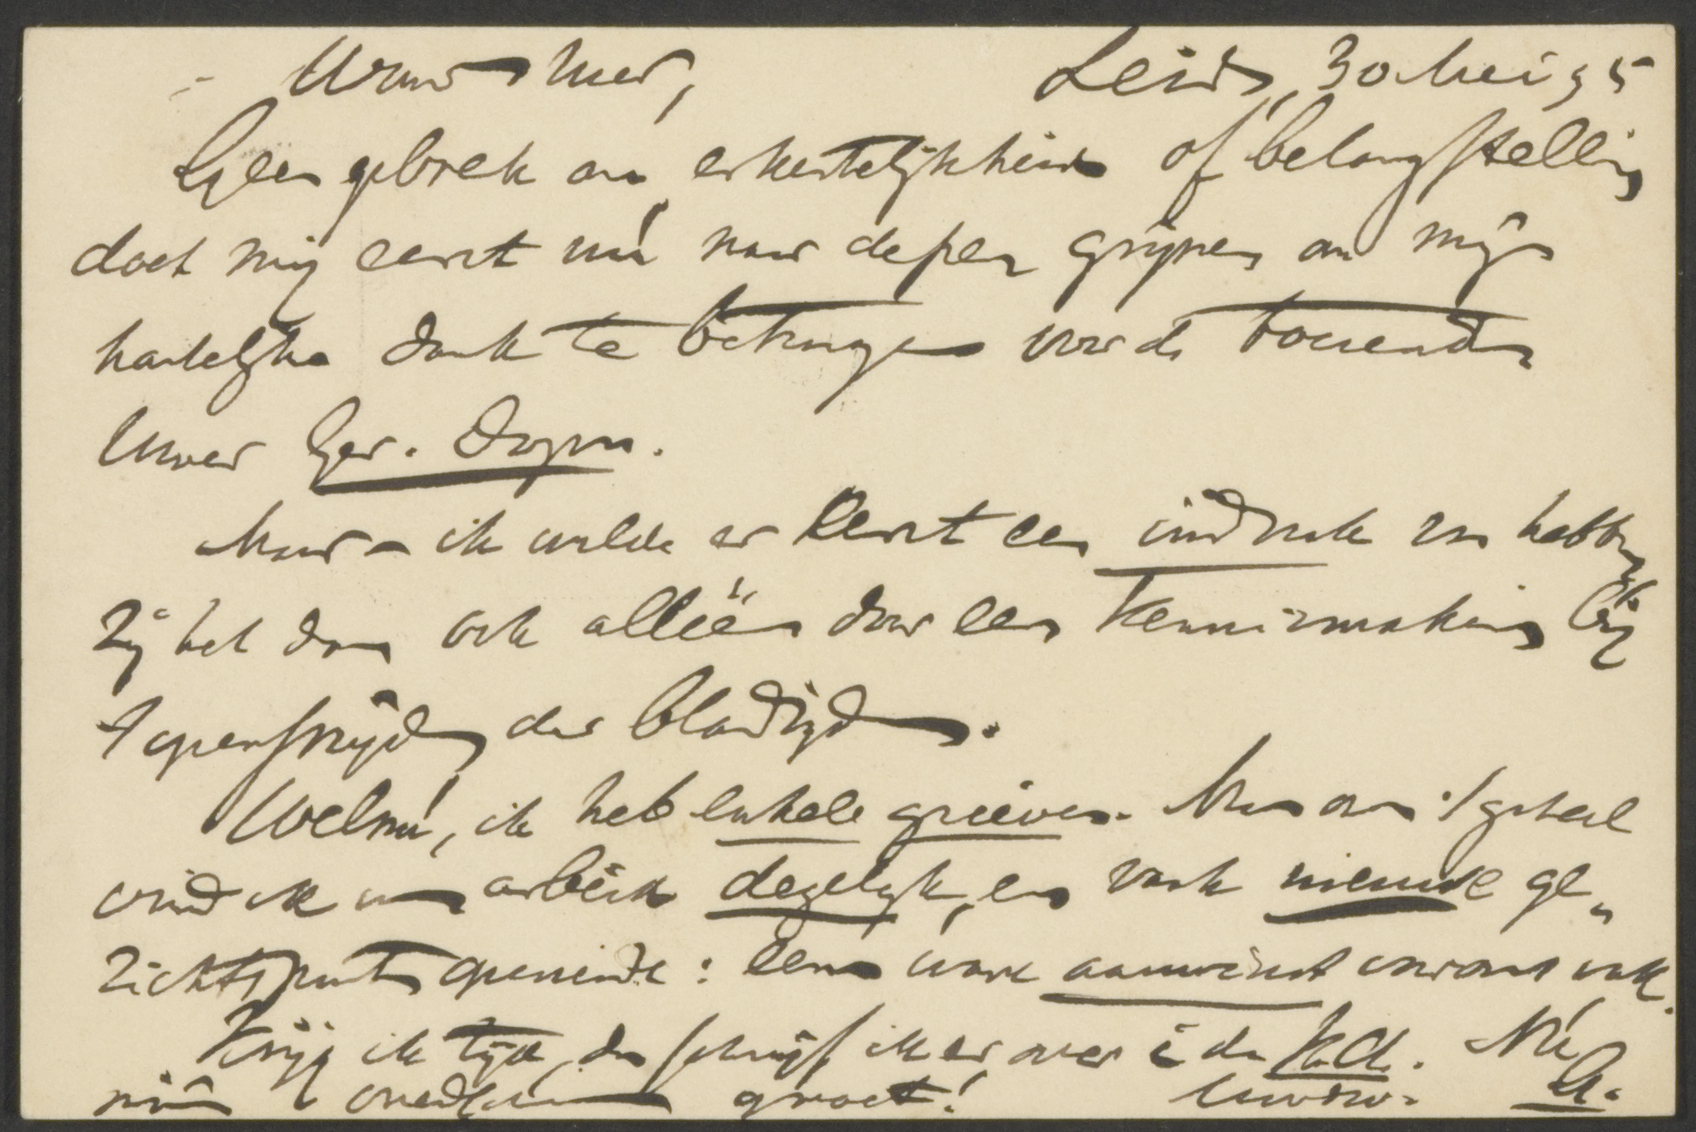 Waarde Heer, Leiden, 30 Mei 95
Geen gebrek aan erkentelijkheid of belangstelling
doet mij eerst nú naar de pen grijpen om mijn
hartelijken dank te betuigen voor de toezending
Uwer Ger.
Maar - ik wilde er eerst een indruk van hebben,
zij het dan ook alléén door een kennismaking bij
't opensnijden der bladzijden.
Welnu, ik heb enkele grieven. Maar over 't geheel
vind ik uw arbeid degelijk, en vaak nieuwe ge„
zichtspunten openende: eene ware aanwinst voor ons vak.
Krijg ik tijd, dan schrijf ik er over in de. Nú
mijn groet! Uwdw.